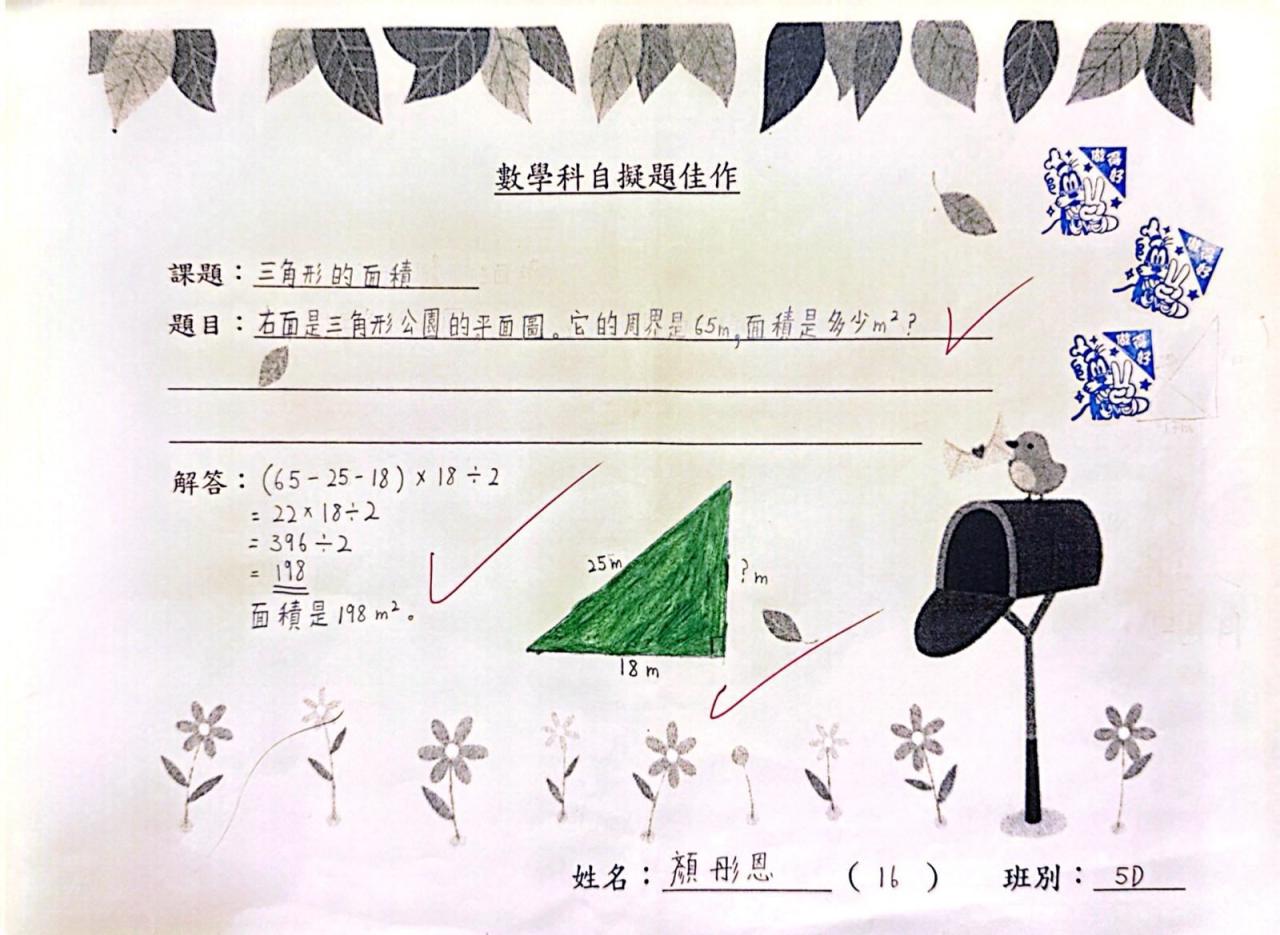 數學科自擬題佳作
做得好
做得好
做得好
課題：三角形的面積
題目：右面是三角形公園的平面圖。它的周界是65m,面積是多少m²?
解答：(65-25-18)×18÷2
= 22×18÷2
= 396÷2
= 198
面積是198m²。
25m
?m
18m
姓名：顏彤恩 ( 16 ) 班別：5D